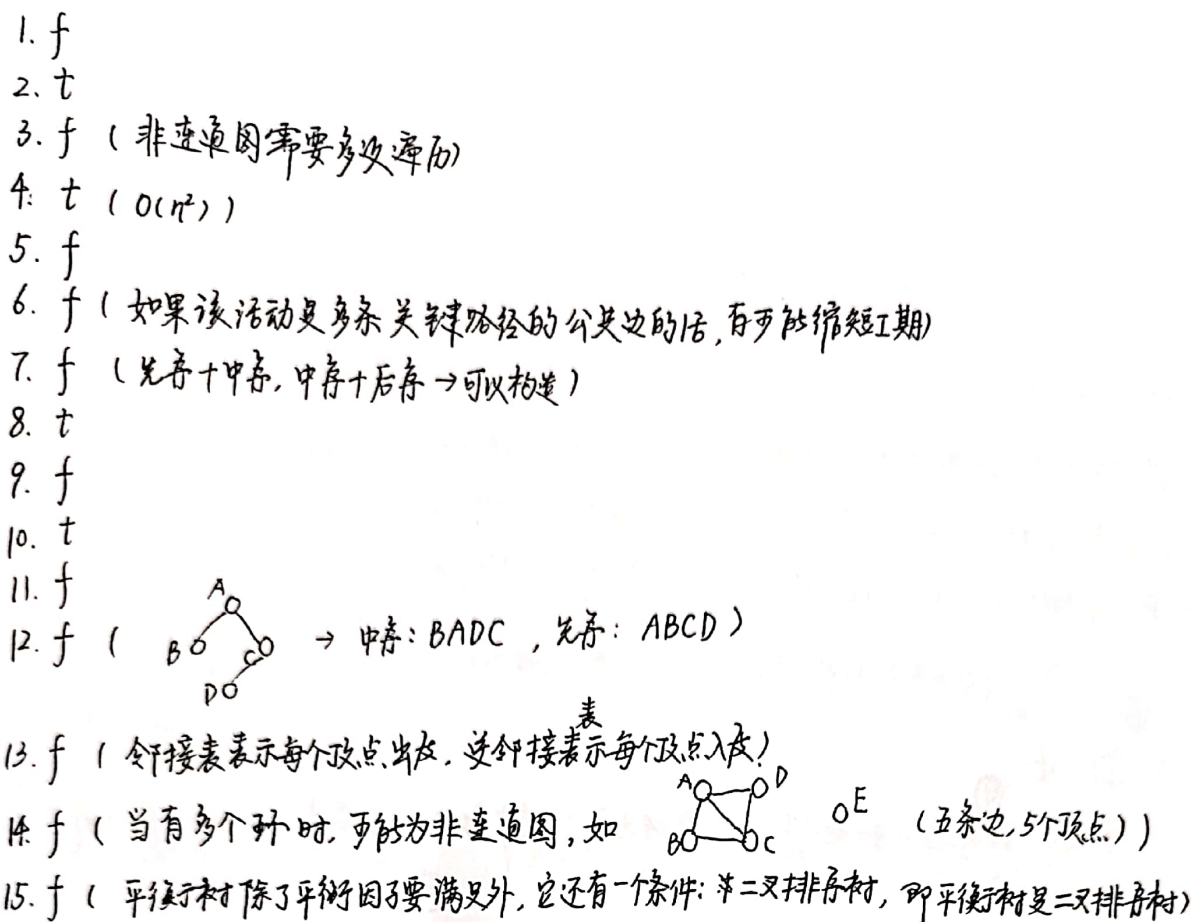 1. f
2. t
3. f ( 非连通图需要多次遍历)
4. t ( O(n²) )
5. f
6. f ( 如果该活动是多条关键路径的公共边的话, 有可能缩短工期)
7. f ( 先序+中序, 中序+后序 → 可以构造 )
8. t
9. f
10. t
11. f
12. f ( A B C D → 中序: BADC , 先序: ABCD )
13. f ( 邻接表表示每个顶点出度, 逆邻接表示每个顶点入度)
表
14. f ( 当有多个环时, 可能为非连通图, 如 A D B C E (五条边, 5个顶点) )
15. f ( 平衡树除了平衡因子要满足外, 它还有一个条件: 二叉排序树, 即平衡树是二叉排序树)